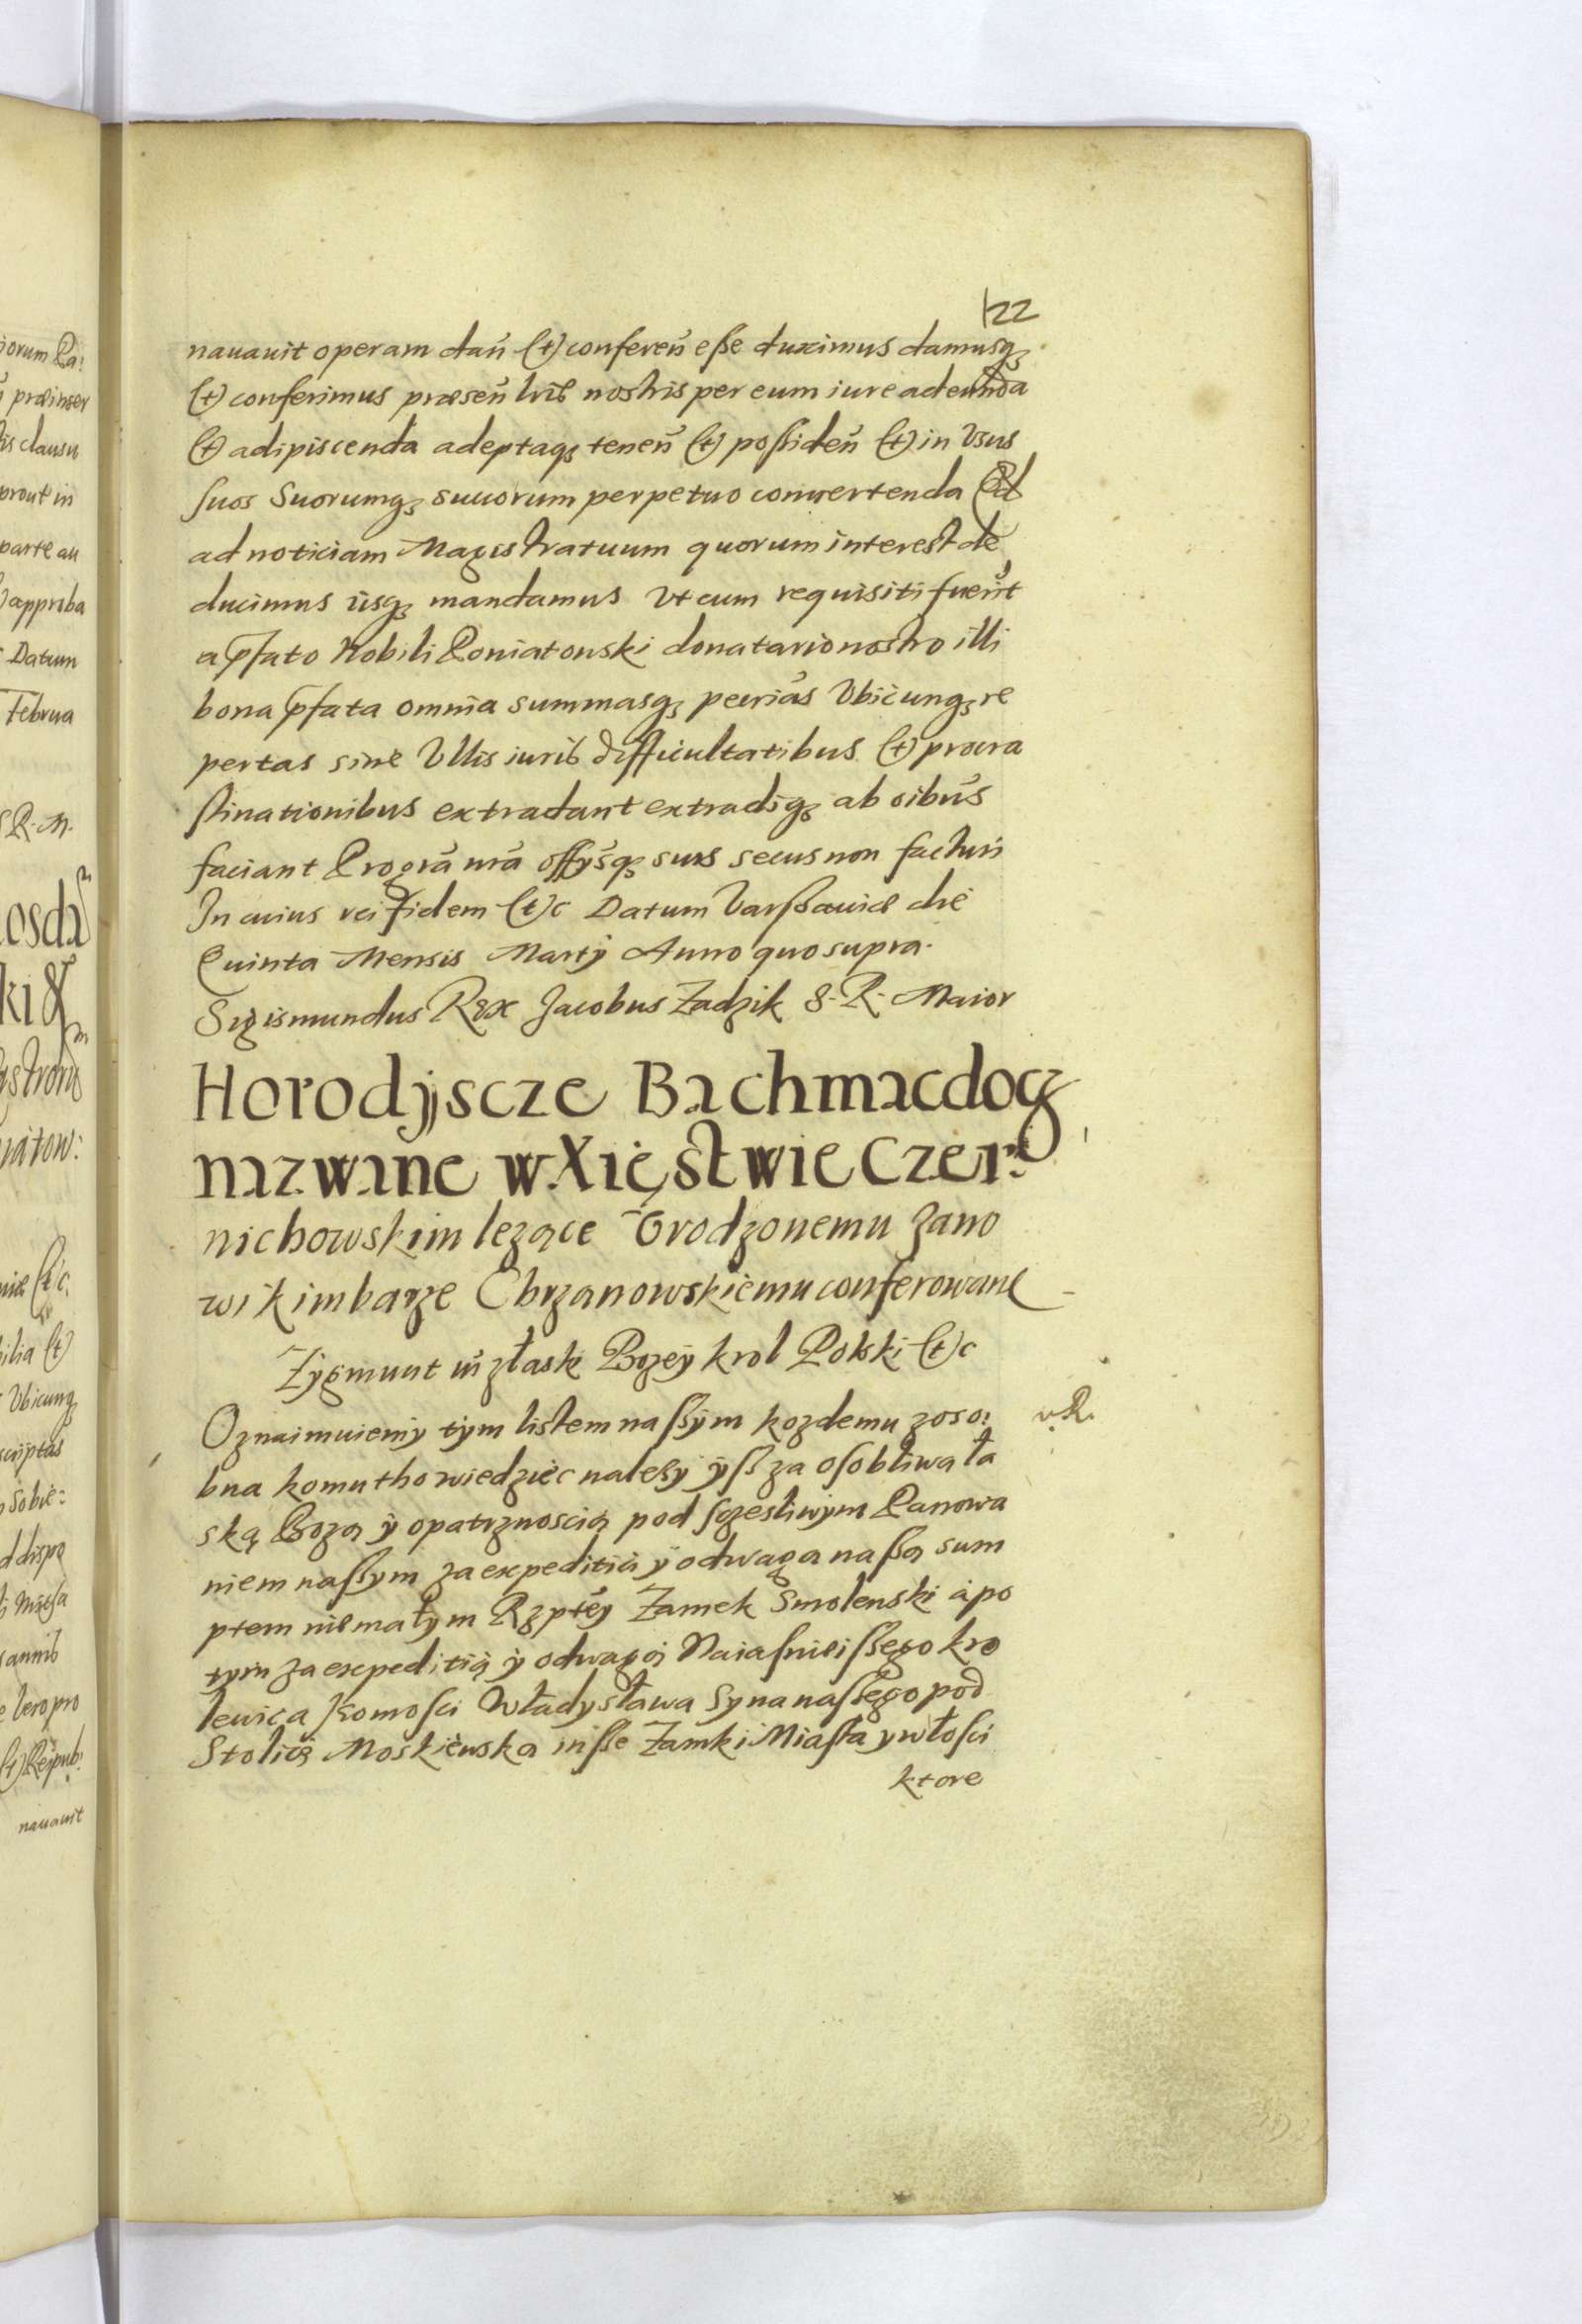 122
nauauit operam dan̄ (t) conferen̄ eſse duximus damusqʒ
(t) conferimus præsen̄ lrīs nostris per eum iure adeunda
(t) adipiscenda adeptaqʒ tenen̄ (t) poſsiden̄ (t) in Vsus
ſuos Suorumqʒ suuorum perpetuo conuertenda Id
ad noticiam Magistratuum quorum interest de
ducimus iisqʒ mandamus Vt cum requisiti fuerīt
a pſato Nobili Poniatouski donatario nostro illi
bona pſata omnia summasqʒ pecrias Vbicunqʒ re
pertas sine Vllis iurib difficultatibus (t) procra
ſtinationibus extradant extradiqʒ ab oibus
faciant Pro gra nra offysqʒ suis secus non facturi
In cuius rei fidem (t)c Datum Varſsauiæ die
Quinta Mensis Martij Anno quo supra.
Sigismundus Rex Jacobus Zadzik S. R. Maior
Horodyscze Bachmacdog
nazwane w Xięstwie Czer:
nichowskim lezące Vrodzonemu Jano
wi kimbarze Chrzanowskiemu conferowane
Zygmunt iii z łaski Bozey krol Polski (t)c
Oznaimuiemy tym listem naſsym kozdemu zoso: v.R.
bna komu tho wiedziec nalesy yſs za osobliwa ła
ską Bozą y opatrznoscią pod sczesliwym Panowa
niem naſsym za expeditią y odwagą naſsą sum
ptem niemałym Rzptey Zamek Smolenski a po
tym za expeditią y odwagą Naiaſnieiſsego kro
lewica Jeomoſci Władysława Syna naſsego pod
Stolicą Moskiewską inſse Zamki Miaſta y włoſci
ktore